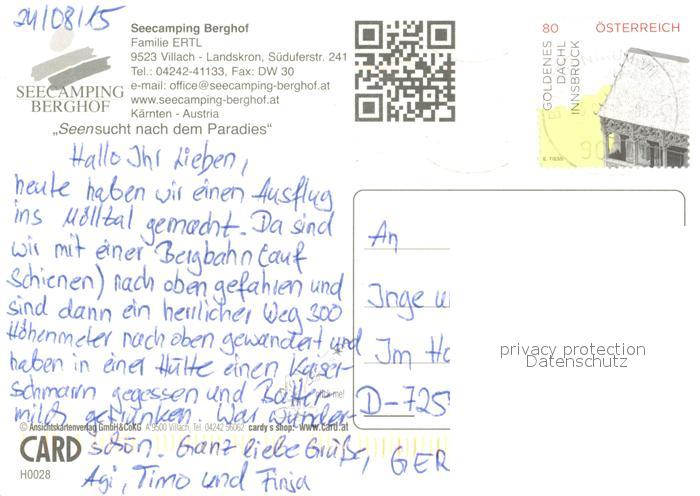 24/08/15
Seecamping Berghof
Familie ERTL
9523 Villach - Landskron, Süduferstr. 241
Tel.: 04242-41133, Fax: DW 30
e-mail: office@seecamping-berghof.at
www.seecamping-berghof.at
Kärnten - Austria
SEECAMPING
BERGHOF
„Seensucht nach dem Paradies“
80 ÖSTERREICH
GOLDENES
DACHL
INNSBRUCK
Hallo Ihr Lieben,
heute haben wir einen Ausflug
ins Mölltal gemacht. Da sind
wir mit einer Bergbahn (auf
Schienen) nach oben gefahren und
sind dann ein herrlicher Weg 300
Höhenmeter nach oben gewandert und
haben in einer Hütte einen Kaiser-
schmarrn gegessen und Butter-
milch getrunken. War wunder-
schön. Ganz liebe Grüße,
Agi, Timo und Finja
An
Inge u
Im Ho
D-725
GER
privacy protection
Datenschutz
© Ansichtskartenverlag GmbH&CoKG A 9500 Villach, Tel. 04242 56062 cardy s shop: www.card.at
CARD
H0028